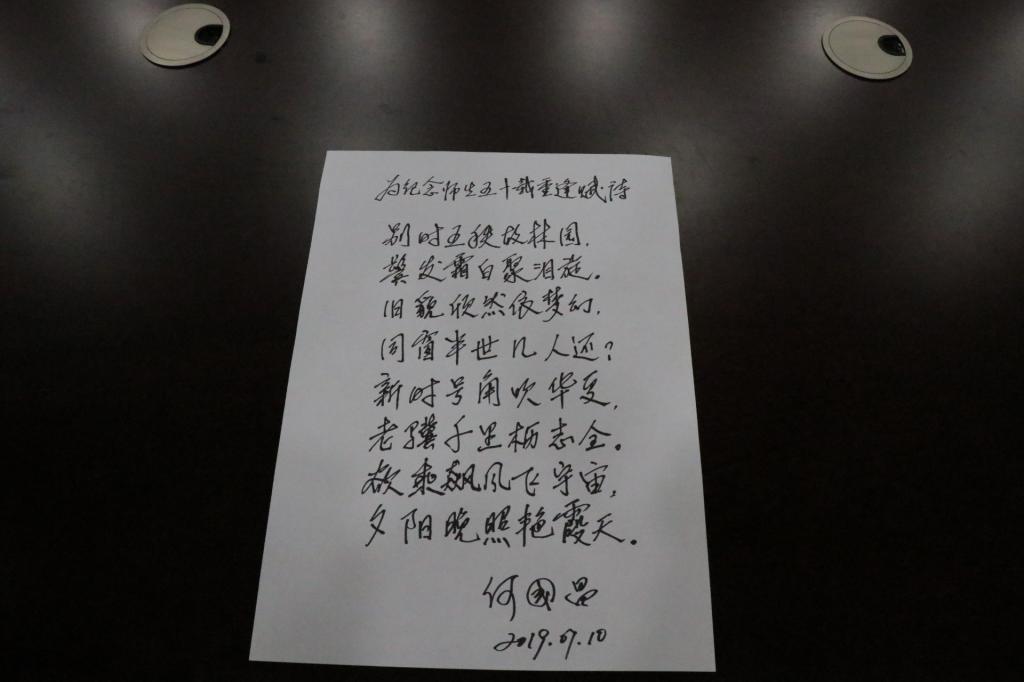 为纪念师生五十载重逢赋诗
别时五秩故林园,
鬓发霜白聚泪旋。
旧貌欣然依梦幻,
同窗半世几人还?
新时号角吹华夏,
老骥千里枥志全。
欲乘飙风飞宇宙,
夕阳晚照艳霞天。
何國昌
2019.07.10